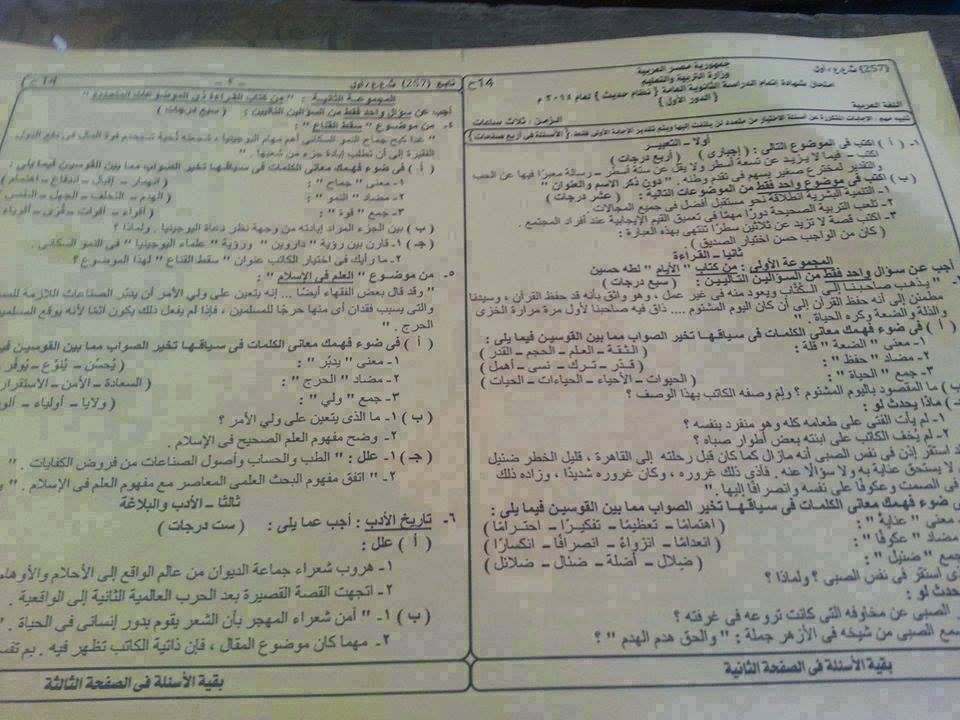 (257) ش.ع / أول
14ح
جمهورية مصر العربية
وزارة التربية والتعليم
امتحان شهادة إتمام الدراسة الثانوية العامة ( نظام حديث ) لعام ٢٠١٤ م
( الدور الأول )
اللغة العربية
الزمن : ثلاث ساعات
تنبيه مهم : الإجابات المتكررة عن أسئلة الاختيار من متعدد لن يلتفت إليها ويتم تقدير الإجابة الأولى فقط ( الأسئلة فى أربع صفحات )
أولا – التعبير
١- ( أ ) اكتب فى الموضوع التالى : ( إجبارى ) ( أربع درجات )
اكتب – فيما لا يزيد عن تسعة أسطر ولا يقل عن ستة أسطر – رسالة معبرًا فيها عن الحب
والتقدير لمخترع صغير يسهم فى تقدم وطنه . " دون ذكر الاسم والعنوان "
( ب ) اكتب فى موضوع واحد فقط من الموضوعات التالية : ( عشر درجات )
١- التنمية البشرية انطلاقة نحو مستقبل أفضل فى جميع المجالات .
٢- تلعب التربية الصحيحة دورًا مهمًا فى تعميق القيم الإيجابية عند أفراد المجتمع .
٣- اكتب قصة لا تزيد عن ثلاثين سطرًا تنتهى بهذه العبارة :
( كان من الواجب حسن اختيار الصديق )
ثانيا – القراءة
المجموعة الأولى : من كتاب " الأيام " لطه حسين
أجب عن سؤال واحد فقط من السؤالين التاليين : ( سبع درجات )
" يذهب صاحبنا إلى الكُتَّاب ويعود منه فى غير عمل ، وهو واثق بأنه قد حفظ القرآن ، وسيدنا
مطمئن إلى أنه حفظ القرآن إلى أن كان اليوم المشئوم .... ذاق فيه صاحبنا لأول مرة مرارة الخزى
والذلة والضعة وكره الحياة . "
( أ ) فى ضوء فهمك معانى الكلمات فى سياقها تخير الصواب مما بين القوسين فيما يلى :
١- معنى " الضعة " قلة : ( الثقة – العلم – الحجم – القدر )
٢- مضاد " حفظ " : ( قدر – ترك – نسى – أهمل )
٣- جمع " الحياة " : ( الحيوات – الأحياء – الحياءات – الحيات )
ما المقصود باليوم المشئوم ؟ ولِمَ وصفه الكاتب بهذا الوصف ؟
ماذا يحدث لو :
١- لم يأت الفتى على طعامه كله وهو منفرد بنفسه ؟
٢- لم يُخف الكاتب على ابنته بعض أطوار صباه ؟
استقر إذن فى نفس الصبى أنه مازال كما كان قبل رحلته إلى القاهرة ، قليل الخطر ضئيل
لا يستحق عناية به ولا سؤالا عنه . فآذى ذلك غروره ، وكان غروره شديدًا ، وزاده ذلك
فى الصمت وعكوفًا على نفسه وانصرافًا إليها . "
ضوء فهمك معانى الكلمات فى سياقها تخير الصواب مما بين القوسين فيما يلى :
معنى " عناية " : ( اهتمامًا – تعظيمًا – تفكيرًا – احترامًا )
مضاد " عكوفًا " : ( انعدامًا – انزواءً – انصرافًا – انكسارًا )
جمع " ضئيل " : ( ضِلال – أضلة – ضئال – ضلائل )
استقر فى نفس الصبى ؟ ولماذا ؟
يحدث لو :
الصبى عن مخاوفه التى كانت تروعه فى غرفته ؟
الصبى من شيخه فى الأزهر جملة : " والحق هدم الهدم " ؟
بقية الأسئلة فى الصفحة الثانية
14ح
– ٢ –
تابع (257) ش.ع / أول
المجموعة الثانية : " من كتاب القراءة ذى الموضوعات المتعددة "
أجب عن سؤال واحد فقط من السؤالين التاليين : ( سبع درجات )
٤- من موضوع " سقط القناع " :
" غدا كبح جماح النمو السكانى أهم مهام اليوجينيا ، فتحطه أحبة تستخدم قوة المال فى دفع الدول
الفقيرة إلى أن تطلب إبادة جزء من شعبها . "
( أ ) فى ضوء فهمك معانى الكلمات فى سياقها تخير الصواب مما بين القوسين فيما يلى :
١- معنى " جماح " : ( انهيار – إقبال – اندفاع – اهتمام )
٢- مضاد " النمو " : ( الهدم – التخلف – الجهل – النقص )
٣- جمع " قوة " : ( أقواء – أقوات – قوى – أقوياء )
( ب ) بين الجزء المراد إبادته من وجهة نظر دعاة اليوجينيا . ولماذا ؟
( جـ ) ١- قارن بين رؤية " داروين " ورؤية " علماء اليوجينيا " فى النمو السكانى .
٢- ما رأيك فى اختيار الكاتب عنوان " سقط القناع " لهذا الموضوع ؟
٥- من موضوع " العلم فى الإسلام " :
" وقد قال بعض الفقهاء أيضًا ... إنه يتعين على ولي الأمر أن يدبر الصناعات اللازمة
والتى يسبب فقدان أى منها حرجًا للمسلمين ، فإذا لم يفعل ذلك يكون آثمًا لأنه يوقع
الحرج . "
( أ ) فى ضوء فهمك معانى الكلمات فى سياقها تخير الصواب مما بين القوسين فيما يلى :
١- معنى " يدبر " : ( يُحسّن – يُنوّع – يُوفر
٢- مضاد " الحرج " : ( السعادة – الأمن – الاستقرار
٣- جمع " ولي " : ( ولايا – أولياء –
( ب ) ١- ما الذى يتعين على ولي الأمر ؟
٢- وضح مفهوم العلم الصحيح فى الإسلام .
( جـ ) ١- علل : " الطب والحساب وأصول الصناعات من فروض الكفايات . "
٢- " اتفق مفهوم البحث العلمى المعاصر مع مفهوم العلم فى الإسلام . "
ثالثا – الأدب والبلاغة
٦- تاريخ الأدب : أجب عما يلى : ( ست درجات )
( أ ) علل :
١- هروب شعراء جماعة الديوان من عالم الواقع إلى الأحلام والأوهام
٢- اتجهت القصة القصيرة بعد الحرب العالمية الثانية إلى الواقعية .
( ب ) ١- " آمن شعراء المهجر بأن الشعر يقوم بدور إنسانى فى الحياة . "
٢- مهما كان موضوع المقال ، فإن ذاتية الكاتب تظهر فيه . بم
بقية الأسئلة فى الصفحة الثالثة